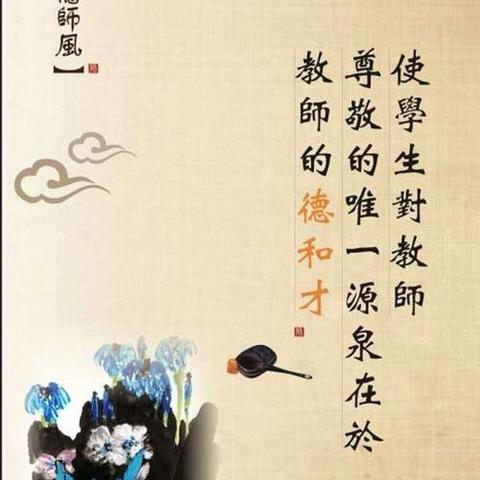 使學生對教師
尊敬的唯一源泉在於
教師的德和才
師風】